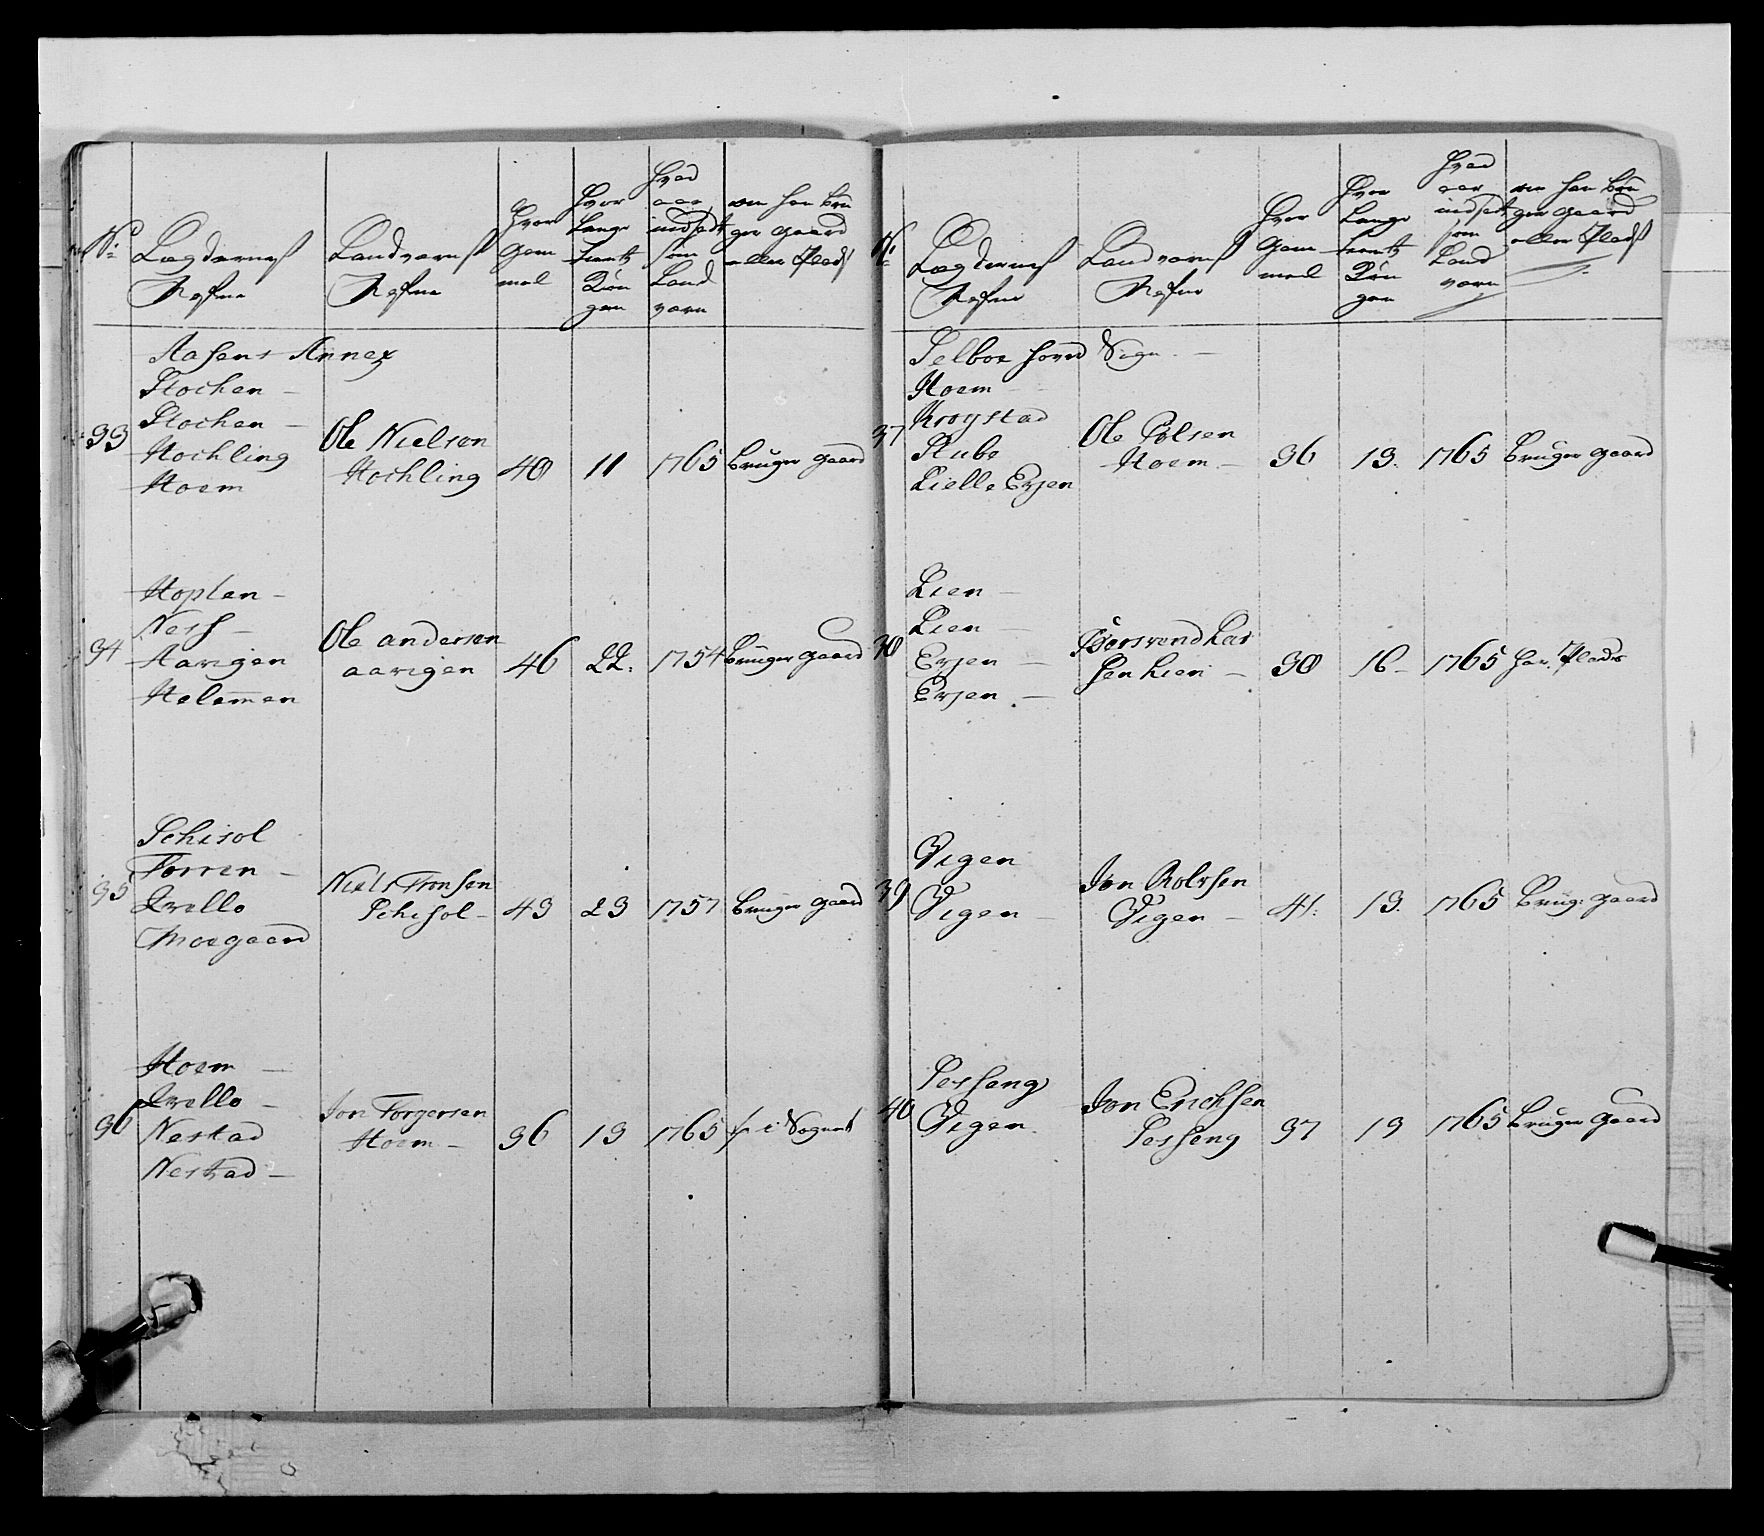 No
Lægdernes
Nafne
Landværns
Nafne
Hvor
gam
mel
Hvor
Længe
tient
Kon
gen
Hvad
aar
indsadt
som
Land
værn
om han bru
ger gaard
eller Plads
Aasens Annex
Stochen –
Stochen –
33 Hochling
Hoem
Ole Nielsen
Hochling 40 11 1765 bruger gaard
Hoplen –
Ness –
34 Aavigen
Helemen
Ole andersen
aavigen 46 22. 1754 bruger gaard
Schisol
Forren –
35 Qvello
Moegaard
Niels Tronsen
Schisol – 43 23 1757 bruger gaard
Hoem –
Qvello –
36 Nestad
Nestad –
Jon Torgersen
Hoem – 36 13 1765 i Sognet
No
Lægdernes
Nafne
Landværns
Nafne
Hvor
gam
mel
Hvor
Længe
tient
Kon
gen
Hvad
aar
indsadt
som
Land
værn
om han bru
ger gaard
eller Plads
Selboe hoved Sogn –
Hoem –
Krogstad
37 Stube
Lielle Evjen
Ole Polsen
Hoem – 36 13. 1765 bruger gaard
Lien –
Lien –
38 Evjen –
Evjen –
Lien – 30 16 – 1765 har Plads
Vigen
39 Vigen –
Jon Rolvsen
Vigen – 41. 13. 1765 brug: gaard
Sesseng
40 Vigen
Jon Erichsen
Sesseng 37 13 1765 bruger gaard